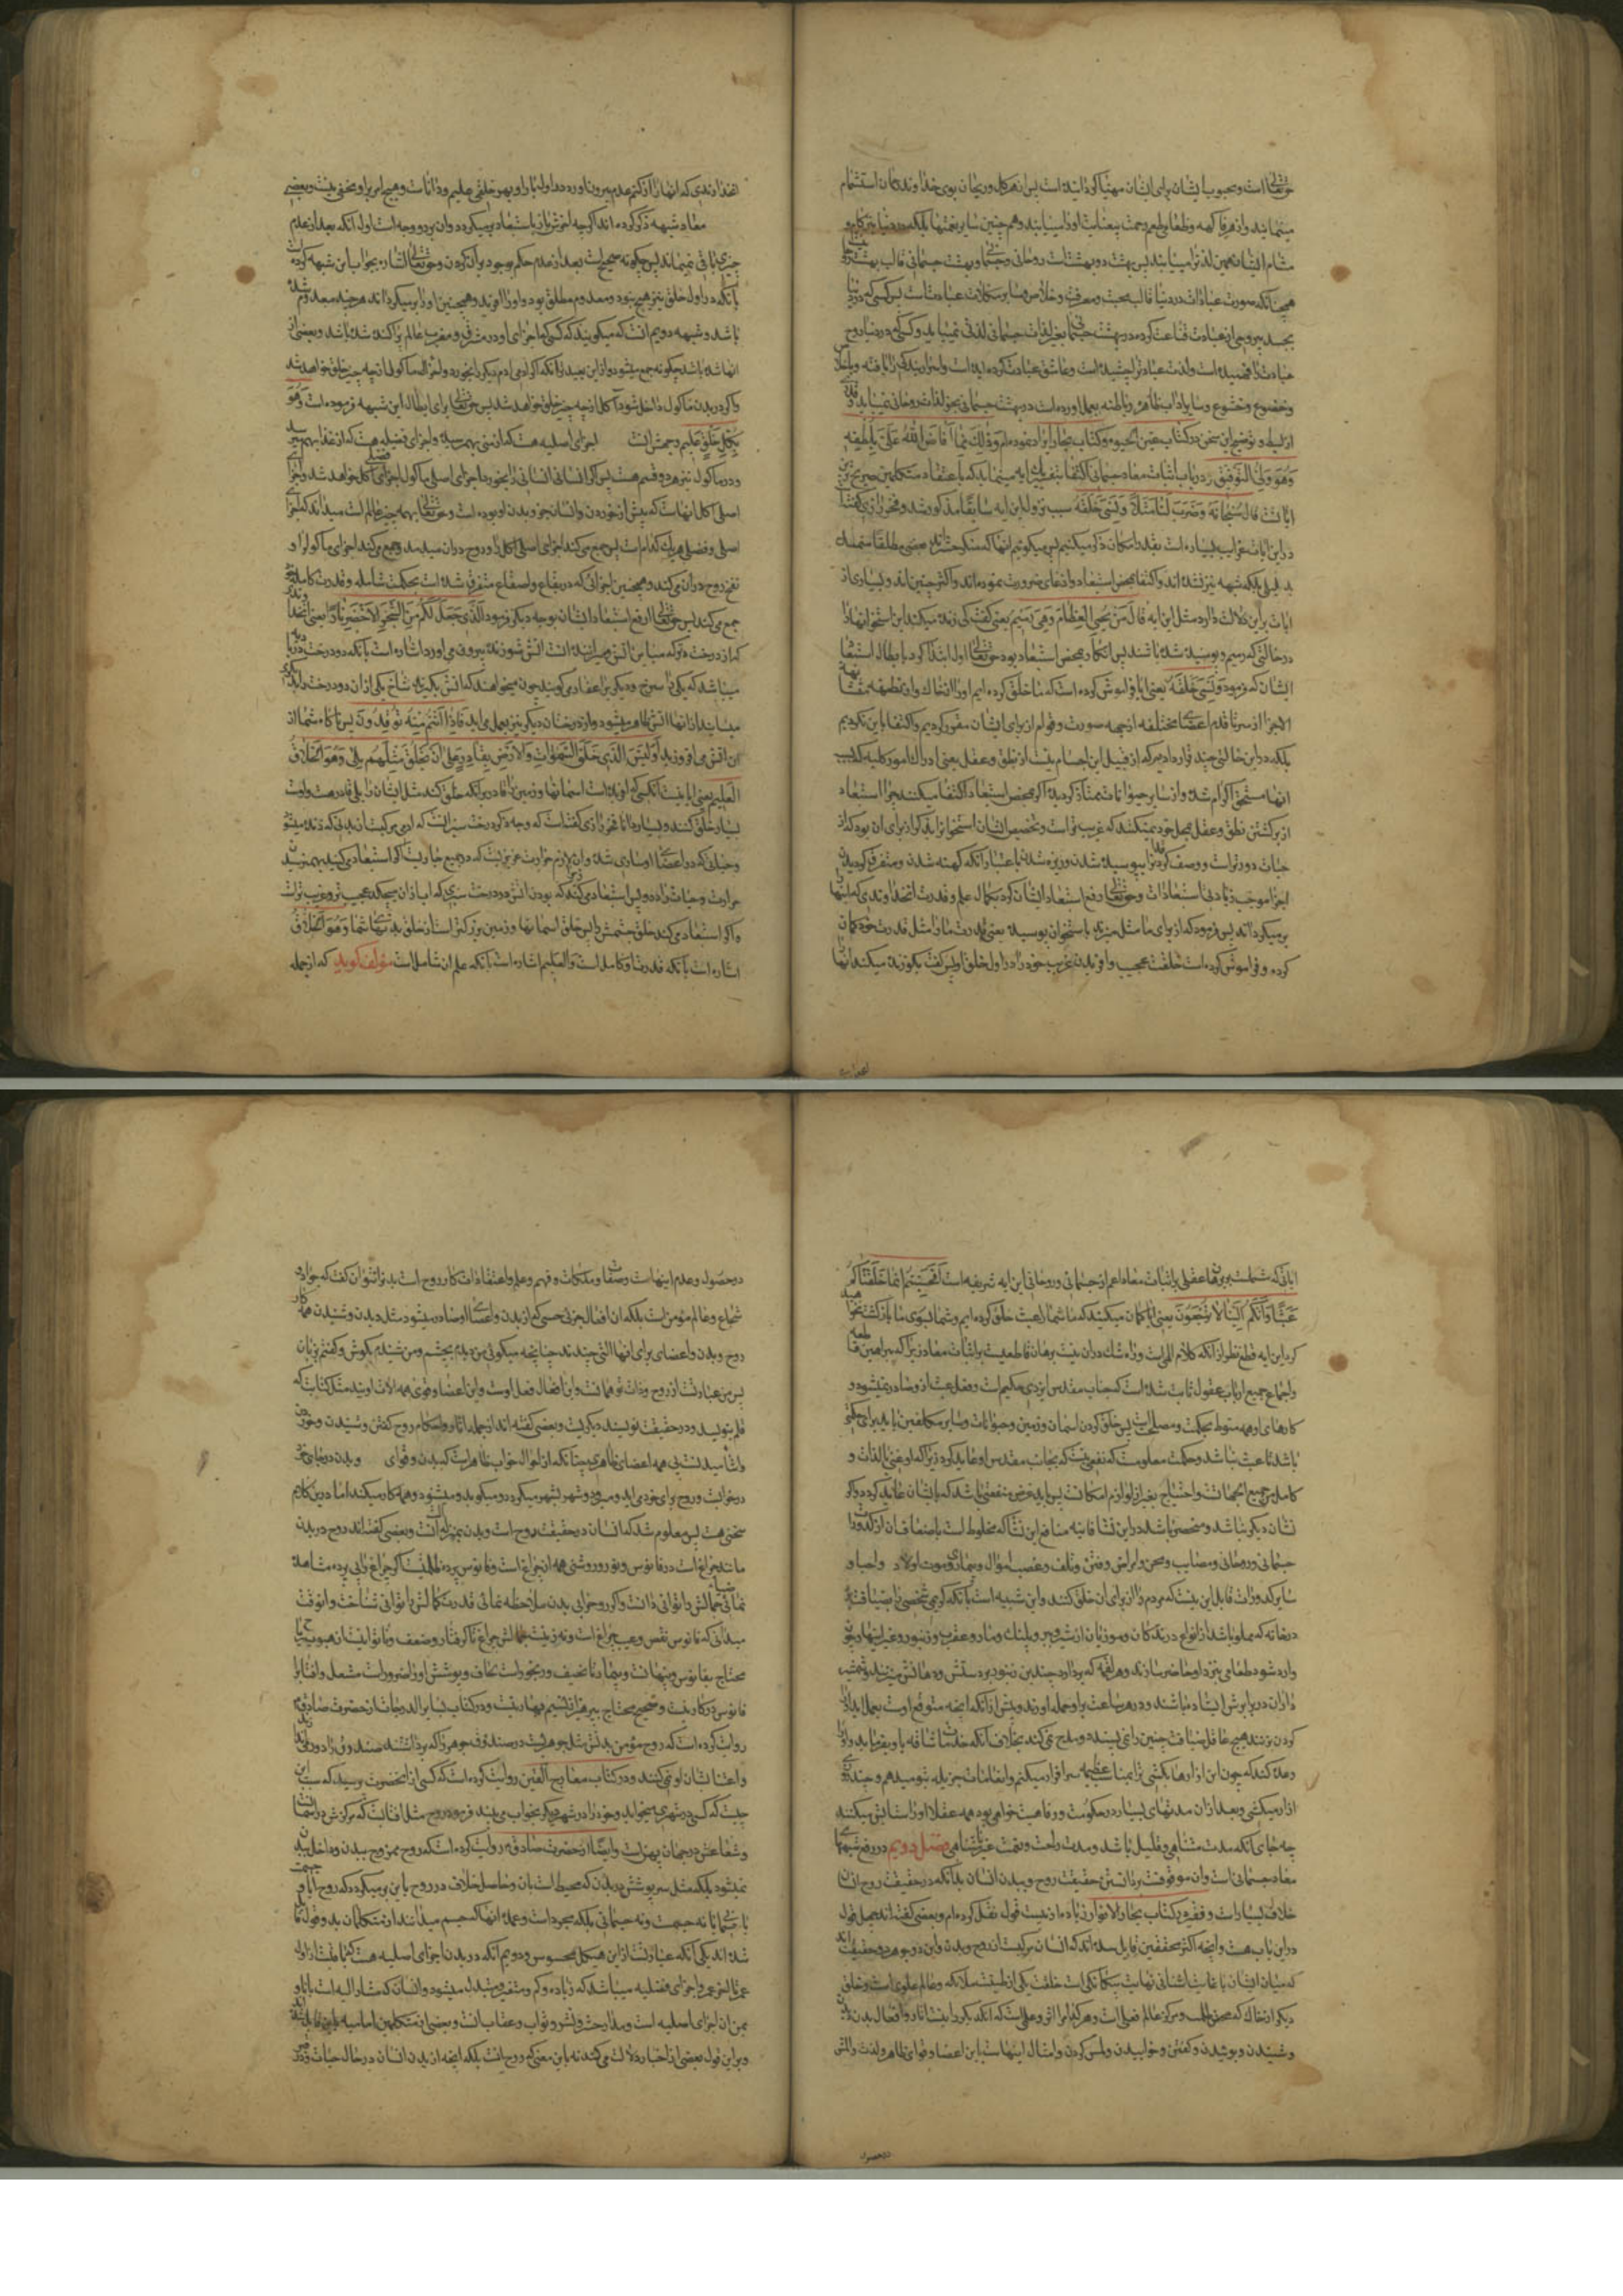 حقتعالی است و محبوب ایشان برای ایشان مهیا کردانیده است پس از هر کل و ریحان بوی خداوند کمان استشمام
مینمایند و از هر فاکهه و طعامی طعم رحمت بیغایت او را مییابند و همچنین سایر نعمتها بلکه در دنیا نیز
مشام ایشان همین لذتها را مییابند پس بهشت دو بهشت است روحانی و جسمانی و بهشت جسمانی قالب بهشت
همچنانکه صورت عبادات در دنیا قالب محبت و معرفت و اخلاص و سایر کمالات عبادتست پس کسی که در دنیا
بجسد بیروحی از عبادت قناعت کرده در بهشت جسمانی بغیر لذات جسمانی لذتی نمییابد و کسی که در دنیا روح
عبادت را فهمیده است و لذت عبادت را چشیده است و عاشق عبادت کردیده است
و خضوع و خشوع و سایر اداب ظاهره و باطنه بعمل اورده است در بهشت جسمانی بجز لذات روحانی نمییابد
از بسط و توضیح این سخن در کتاب عین الحیوة و کتاب بحار ایراد نموده ام و ذلک مما افاض الله علی بلطفه
و هو ولی التوفیق و در باب اثبات معاد جسمانی اکتفا بتفسیر یک ایه مینماید که باعتقاد متکلمین صریح ترین
ایاتست قال سبحانه و ضرب لنا مثلا و نسی خلقه سبب نزول این ایه سابقا مذکور شد و فخر رازی گفته
در این ایات غرایب بسیار است بقدر امکان ذکر میکنیم پس میکوئیم انها که منکر حشرند بعضی مطلقا متمسک
بدلیلی بلکه شبهه نیز نشده اند و اکتفا بمحض استبعاد و ادعای ضرورت نموده اند و اکثر چنین اند و بسیاری از
ایات بر این دلالت دارد مثل این ایه قال من یحیی العظام و هی رمیم یعنی گفت کی زنده میکند این استخوانها را
در حالتی که رمیم و پوسیده شده باشند پس انکار و محض استبعاد بود حقتعالی اول ابتدا کرد بابطال استبعاد
ایشان که فرمود و نسی خلقه یعنی ایا فراموش کرده است که ما خلق کرده ایم او را از خاک و از نطفه
الاجزا از سر تا قدم اعضای مختلفه از جهه صورت و قوام از برای ایشان مقرر کردیم و اکتفا باین نکردیم
بلکه در این حالتی چند قرار دادیم که از قبیل این اجسام نیست از نطق و عقل یعنی ادراک امور کلیه که بسبب
انها مستحق اکرام شده و از سایر حیوانات ممتاز کردیده اکر بمحض استبعاد اکتفا میکنند چرا استبعاد
از برکشتن نطق و عقل بمحل خود نمیکنند که غریب تر است و تخصیص ایشان استخوان را بذکر از برای ان بود که از
حیات دورتر است و وصف کردند انرا بپوسیده شدن و ریزه شدن باعتبار آنکه کهنه شدن و متفرق کردیدن
اجزا موجب زیادتی استبعاد است و حقتعالی دفع استبعاد ایشان کرد بکمال علم و قدرت انخداوندی که اینها را
برمیکرداند پس فرمود که از برای ما مثل میزند باستخوان پوسیده یعنی قدرت ما را مثل قدرت خود کمان
کرده و فراموش کرده است خلقت عجیب و افریدن غریب خود را در اول خلق او پس گفت بکو زنده میکند انها را
انخداوندی که انها را از کتم عدم بیرون اورده در اول بار او بهر خلقی علیم و داناست و هیچ امر بر او مخفی نیست و بعضی
معاد شبهه ذکر کرده اند اکر چه اخرش باز باستبعاد برمیکردد و ان بر دو وجه است اول آنکه بعد از عدم
چیزی باقی نمیماند پس چکونه صحیح است بعد از عدم حکم بوجود بر آن کردن و حقتعالی اشاره بجواب این شبهه کرده است
بآنکه در اول خلق نیز هیچ نبود و معدوم مطلق بود و او را افرید و همچنین او را برمیکرداند هر چند معدوم شده
باشد و شبهه دویم انست که میکویند که کسی که اجزای او در مشرق و مغرب عالم پراکنده شده باشد و بعضی از
انها شده باشد چکونه جمع میشود و از این بعیدتر آنکه اکر ادمی ادم دیکر را بخورد و اجزای ماکول از چه چیز خلق خواهد شد
و اکر در بدن ماکول داخل شود آکل از چه چیز خلق خواهد شد پس حقتعالی برای ابطال این شبهه فرموده است و هو
بکل خلق علیم و جهش انست اجزای اصلیه هست که از منی بهم رسیده و اجزای فضلیه هست که از غذا بهم میرسد
و در ماکول نیز هر دو قسم هست پس اکر انسانی انسانی را بخورد اجزای اصلی ماکول اجزای فضلی آکل خواهد شد و اجزای
اصلی آکل انهاست که پیش از خوردن و انسان جزو بدن او بوده است و حقتعالی بهمه چیز عالم است میداند که اجزای
اصلی و فضلی هر یک کدام است پس جمع میکند اجزای اصلی آکل را و روح در ان میدمد و جمع میکند اجزای ماکول را و
نفخ روح در ان میکند و همچنین اجزائی که در بقاع و اصقاع متفرق شده است بحکمت شامله و قدرت کامله
جمع میکند پس حقتعالی رفع استبعاد ایشان بوجه دیکر فرمود الذی جعل لکم من الشجر الاخضر نارا یعنی انخداوندی
که از درخت سبز اتش سوزنده بیرون می اورد اشاره است بآنکه دو درخت در بادیه
میباشد که یکی را مرخ و دیکری را عفار میکویند چون میخواهند که اتش بکیرند شاخ یکی از ان دو درخت را بر دیکری
میسایند از انها اتش ظاهر میشود و از درختان دیکر نیز بعمل می اید فاذا انتم منه توقدون پس ناکاه شما از
ان اتش می افروزید اولیس الذی خلق السموات و الارض بقادر علی ان یخلق مثلهم بلی و هو الخلاق
العلیم یعنی ایا نیست آنکسی که افریده است اسمانها و زمین را قادر بر آنکه خلق کند مثل ایشان را بلی قادر هست و اوست
بسیار خلق کننده و بسیار دانا فخر رازی گفته است که وجه ذکر درخت سبز انست که ادمی مرکبست از بدنی که دیده میشود
و حیاتی که در اعضای او ساری شده و ان لازم حرارت غریزیست که در جمیع جاریست اکر استبعاد میکنید بهم رسیدن
حرارت و حیات را در او پس استبعاد میکنند که بودن اتش در درخت سبزی که اب از ان میچکد عجیب تر و غریب تر است
و اکر استبعاد میکنید خلق جثه اش را پس خلق اسمانها و زمین بزرکتر است از خلق بدنهای شما و هو الخلاق
اشاره است بآنکه قدرتش کامل است و العلیم اشاره است بآنکه علم ان شاملست مؤلف کوید که از جمله
ایاتی که مشتملست بر برهان عقلی باثبات معاد اعم از جسمانی و روحانی این ایه شریفه است افحسبتم انما خلقناکم
عبثا و انکم الینا لا ترجعون یعنی ایا کمان میکنید که ما شما را بعبث خلق کرده ایم و شما بسوی ما بازکشت نخواهید
کرد این ایه قطع نظر از آنکه کلام الهی است و راه شک در ان نیست برهان قاطعیست بر اثبات معاد زیرا که ببراهین قاطعه
و اجماع جمیع ارباب عقول ثابت شده است که جناب مقدس ایزدی حکیم است و فعل عبث از او صادر نمیشود و
کارهای او همه منوط بحکمت و مصلحت است پس خلق کردن اسمان و زمین و حیوانات و سایر مکلفین باید برای حکمتی
باشد تا عبث نباشد و حکمت معلومست که نفعی نیست که بجناب مقدس او عاید کردد زیرا که او غنی بالذات و
کامل من جمیع الجهاتست و احتیاج بغیر از لوازم امکانست پس باید غرض منفعتی باشد که بایشان عاید کردد و اکر
نشاه دیکر نباشد و منحصر باشد در این نشاه فانیه منافع این نشاه که مخلوط است باضعاف ان از کدورات
جسمانی و روحانی و مصایب و محن و امراض و فتن و تلف و غصب اموال و بیماری و موت اولاد و احباء و
سایر کدورات قابل این نیست که مردم را از برای ان خلق کنند و این شبیه است بآنکه کریمی شخصی را بضیافت
در خانه که مملو باشد از انواع درندکان و موذیان از شیر و ببر و پلنک و مار و عقرب و زنبور و غیر اینها و چون
وارد شود طعامی نزد او حاضر سازند و هر لقمه که بردارد چندین زنبور بر دستش و دهانش نیش زنند
کردن بزنند هیچ عاقل ضیافت چنین را نمی پسندد و مدح نمیکند بخلاف آنکه
وعده کند که چون این ازارها بکشی ترا بمناصب عظیمه سرافراز میکنم و انعامات جزیله بتو میدهم و چند روزی
ازار میکشی و بعد از ان مدتهای بسیار در حکومت و رفاهیت خواهی بود همه عقلا او را ستایش میکنند
چه جای آنکه مدت متناهی و قلیل باشد و مدت راحت و نعمت غیر متناهی فصل دویم در رفع شبههای
معاد جسمانی است و ان موقوفست بر دانستن حقیقت روح و بدن انسان بدانکه در حقیقت روح انسان
خلاف بسیار است و فقیر در کتاب بحار الانوار زیاده از بیست قول نقل کرده ام و بعضی گفته اند چهل قول
در این باب هست و آنچه اکثر محققین قایل شده اند که انسان مرکبست از روح و بدن و این دو جوهر در حقیقت
که میان ایشان با غایت اشنائی نهایت بیکانکی است خلقت یکی از طینت ملائکه و عالم علوی است و خلق
دیکر از خاک که محض ظلمت و مرکز عالم سفلی است
و شنیدن و بوئیدن و کفتن و خوابیدن و لمس کردن و امثال اینها است با این اعضا و قوای ظاهر و لذت و الم
در حصول و عدم اینها است و صفات و ملکات و فهم و علم و اعتقادات کار روح است بدن را نتوان گفت که جواد و
شجاع و عالم و مؤمن است بلکه ان افعال جزئی حسی که از بدن و اعضای او صادر میشود مثل دیدن و شنیدن همه کار
روح و بدن و اعضای برای انها التی چندند چنانچه میکوئی من دیدم بچشم و من شنیدم بکوش و گفتم بزبان
پس من عبارتست از روح و ذات تو همانست و این افعال فعل اوست و این اعضا و قوی همه آلات اویند مثل کتابت که
قلم بنویسد و در حقیقت نویسنده دیکریست و بعضی گفته اند از جمله اثار و احکام روح گفتن و شنیدن و خوردن
و اشامیدنست بی همه اعضای ظاهری چنانکه از احوال خواب ظاهر است که بدن و قوای و بدن در جای خود
در خوابست و روح برای خود می اید و میرود و شهر بشهر میکردد و میکوید و میشنود و همه کار میکند اما در این کلام
سخنی هست پس معلوم شد که انسان در حقیقت روح است و بدن بمنزله آلت و بعضی گفته اند روح در بدن
مانند چراغ است در فانوس و نور و روشنی همه از چراغ است و فانوس پرده ظلمانیست اکر چراغ را بی پرده مشاهده
نمائی جمالش را توانی دانست و اکر روح را بی بدن ملاحظه نمائی قدرت کمالش را توانی شناخت و انوقت
میدانی که فانوس نقص و عیب چراغ است و نه زینت جمالش چراغ تا کرفتار و ضعف و ناتوانیست
محتاج بفانوس و بدنهاست و بیمار تا نحیف و رنجور است بلحاف و پوشش او را ضرور است مشعل و افتاب را
فانوس در کار نیست و صحیح محتاج بپرهیز از نسیم بهار نیست و در کتاب بصایر الدرجات از حضرت صادق
روایت کرده است که روح مؤمن در بدنش مثل جوهریست در صندوق جوهر را که برداشتند صندوق را دور می اندازند
و اعتنا بشان او نمیکنند و در کتاب مصابیح الفتن روایت کرده است که کسی از انحضرت پرسید که سبب این
چیست که کسی در شهری میخوابد و خود را در شهر دیکر بخواب می بیند فرمود روح مثل افتابست که مرکزش در اسمان است
و شعاعش در جهان پهن است و ایضا از حضرت صادق روایت کرده است که روح ممزوج ببدن و داخل بدن
نمیشود بلکه مثل سرپوشش بر بدن که محیط است بآن و حاصل خلاف در روح باین برمیکردد که روح ایا جسم است
یا جسمانی یا نه جسمست و نه جسمانی بلکه مجرد است و عمده انها که جسم میدانند از متکلمان بدو قول قایل
شده اند یکی آنکه عبارتست از این هیکل محسوس و دویم آنکه در بدن اجزای اصلیه هست که باقیست از اول
عمر تا اخر عمر و اجزای فضلیه میباشد که زیاده و کم و متغیر و متبدل میشود و انسان که مشار الیه است بانا و
من ان اجزای اصلیه است و مدار حشر و نشر و ثواب و عقاب انست و بعضی از متکلمین امامیه باین قایل شده اند
و بر این قول بعضی از اخبار دلالت میکند نه باین معنی که روح انست بلکه آنچه از بدن انسان در حال حیات و